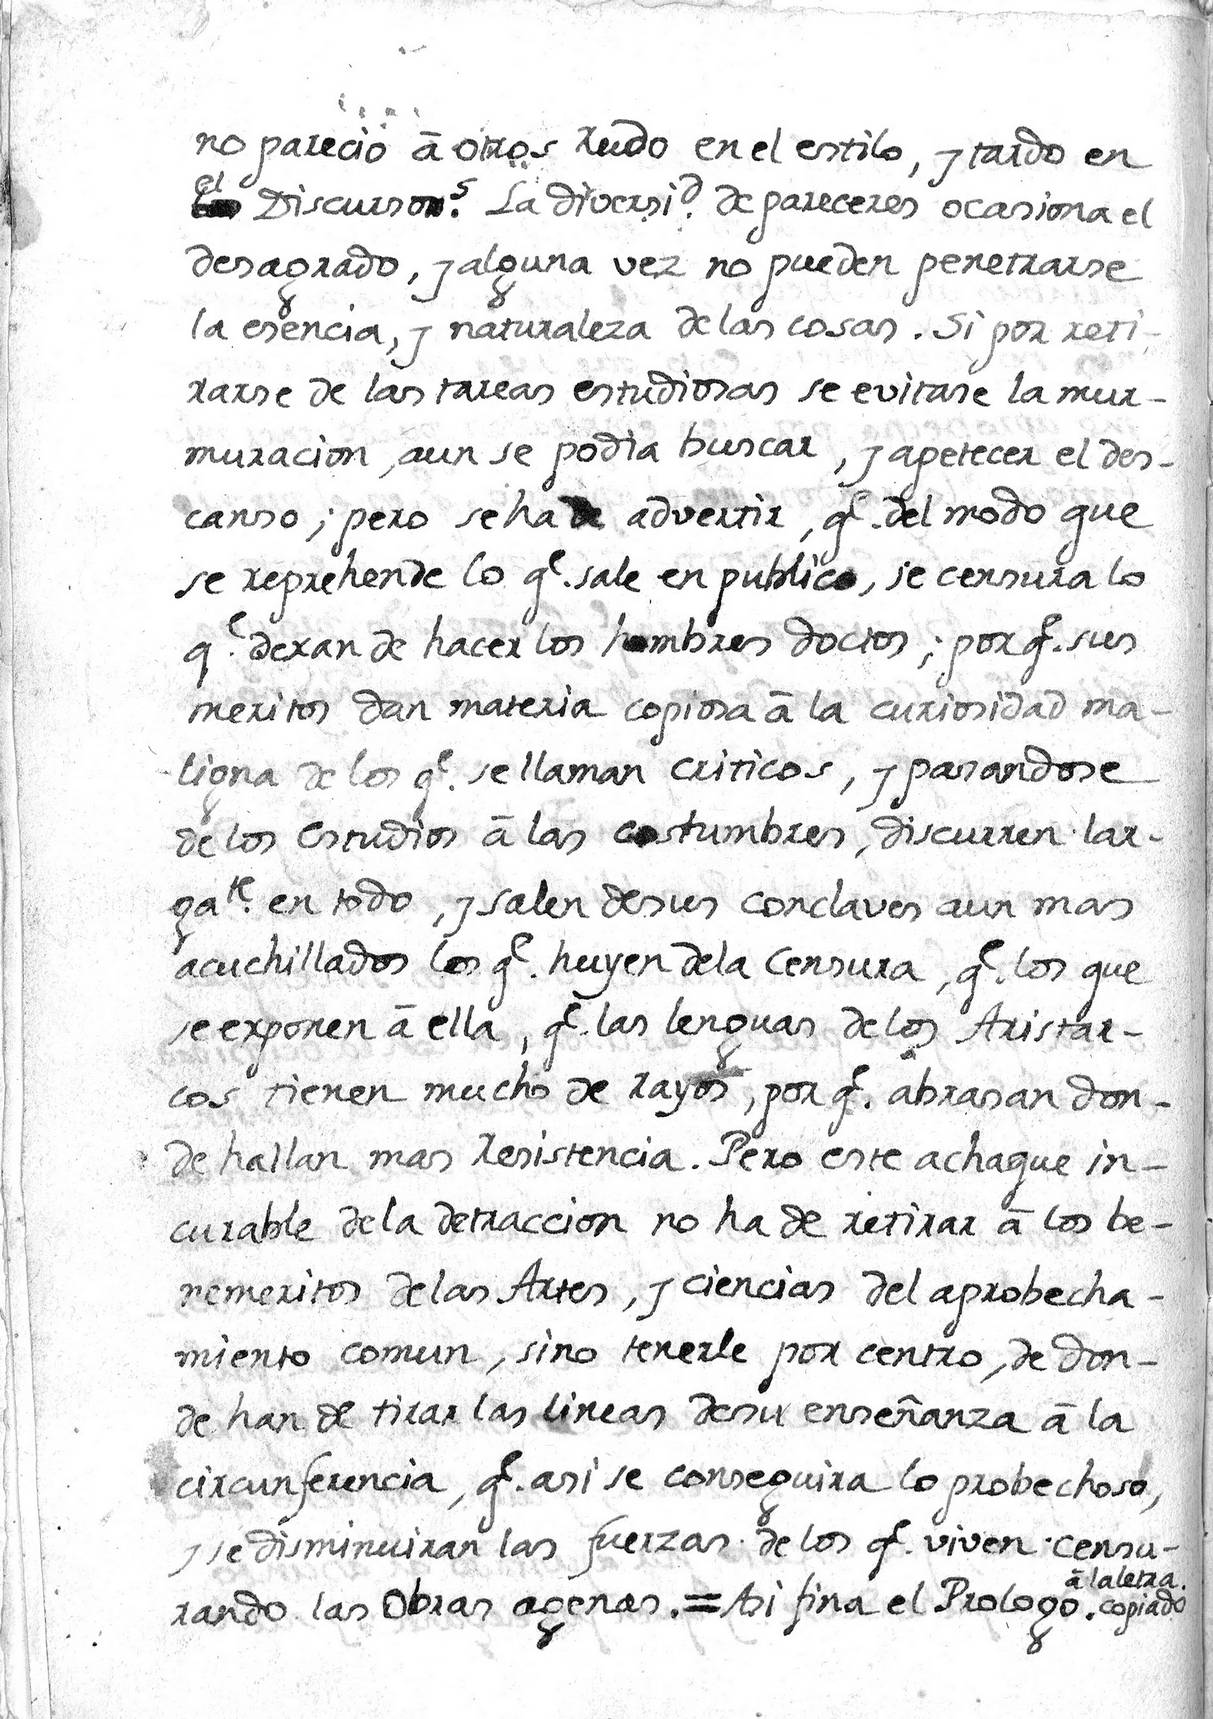 no parecio ā otros rudo en el estilo, y tardo en
el Discurso. La diversi.ᵈ de pareceres ocasiona el
desagrado, y alguna vez no pueden penetrarse
la esencia, y naturaleza de las cosas. Si por reti-
rarse de las tareas estudiosas se evitase la mur-
muracion, aun se podia buscar, y apetecer el des-
canso; pero se ha de advertir, q.ᵉ del modo que
se reprehende lo q.ᵉ sale en publico, se censura lo
q.ᵉ dexan de hacer los hombres doctos; por q.ᵉ sus
meritos dan materia copiosa ā la curiosidad ma-
ligna de los q.ᵉ se llaman criticos, y pasandose
de los estudios ā las costumbres, discurren lar-
ga.ᵗᵉ en todo, y salen de sus conclaves aun mas
acuchillados los q.ᵉ huyen dela Censura, q.ᵉ los que
se exponen ā ella, q.ᵉ las lenguas de los Aristar-
cos tienen mucho de rayos, por q.ᵉ abrasan don-
de hallan mas Resistencia. Pero este achaque in-
curable de la detraccion no ha de retirar ā los be-
nemeritos de las Artes, y ciencias del aprobecha-
miento comun, sino tenerle por centro, de don-
de han de tirar las lineas de su enseñanza ā la
circunferencia, q.ᵉ asi se conseguira lo probechoso,
y se disminuiran las fuerzas de los q.ᵉ viven censu-
rando las Obras agenas. = Asi fina el Prologo. copiado
ā la letra.